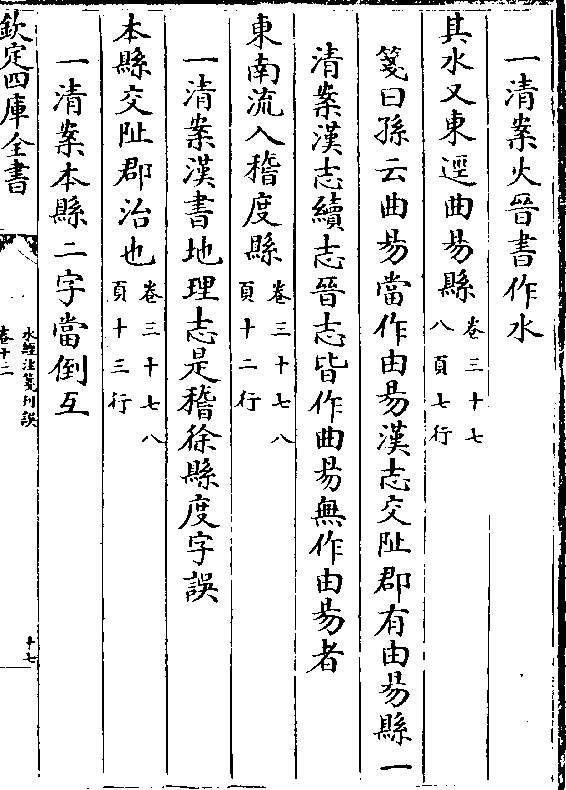 一清案火晉書作水
其水又東逕曲昜縣卷三十七
八頁七行
箋曰孫云曲昜當作由昜漢志交阯郡有由昜縣一
清案漢志續志晉志皆作曲昜無作由昜者
東南流入稽度縣卷三十七八
頁十二行
一清案漢書地理志是稽徐縣度字誤
本縣交阯郡治也卷三十七八
頁十三行
一清案本縣二字當倒互
欽定四庫全書
水經注箋刊誤
卷十二
十七